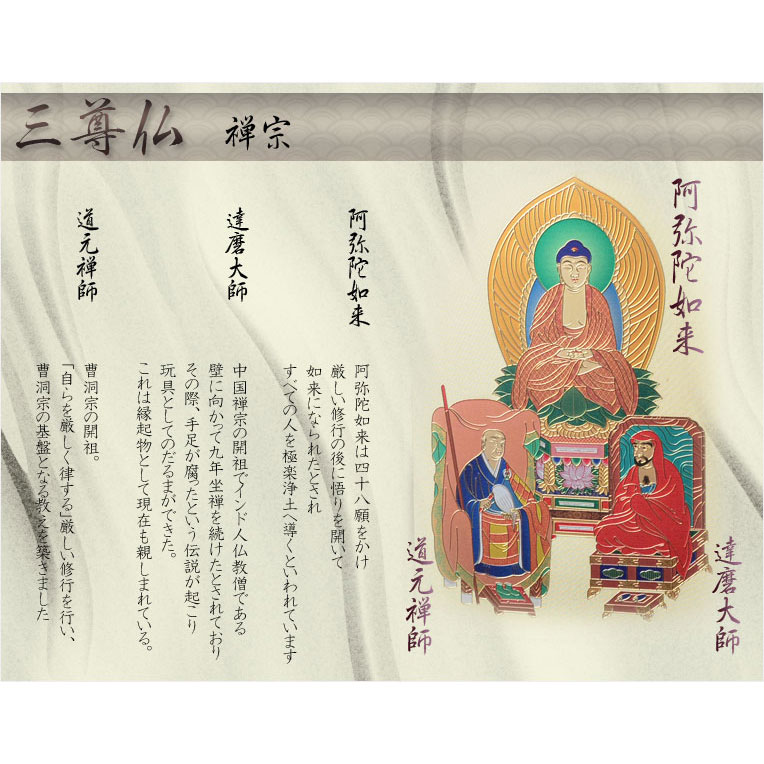 三尊仏 禅宗
阿弥陀如来
達磨大師
道元禅師
阿弥陀如来
阿弥陀如来は四十八願をかけ
厳しい修行の後に悟りを開いて
如来になられたとされ
すべての人を極楽浄土へ導くといわれています
達磨大師
中国禅宗の開祖でインド人仏教僧である
壁に向かって九年坐禅を続けたとされており
その際、手足が腐ったという伝説が起こり
玩具としてのだるまができた。
これは縁起物として現在も親しまれている。
道元禅師
曹洞宗の開祖。
「自らを厳しく律する」厳しい修行を行い、
曹洞宗の基盤となる教えを築きました